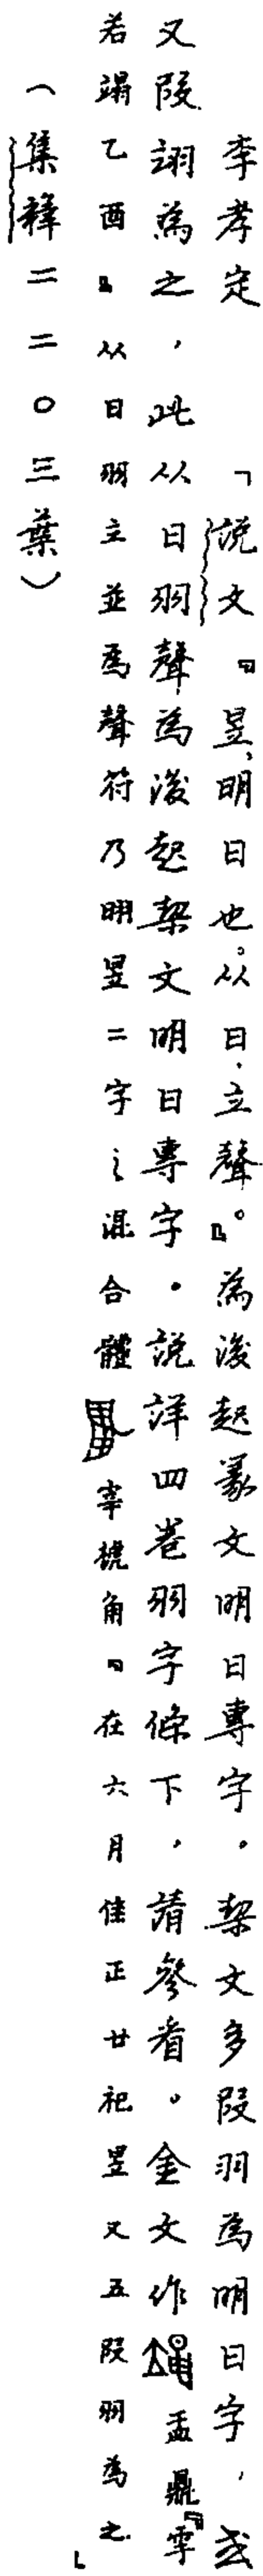 李孝定 「說文『昱，明日也。从日，立聲。』為後起篆文明日專字。栔文多叚羽為明日字，或
又叚翊為之，此从日羽聲為後起栔文明日專字。說詳四卷羽字條下，請參看。金文作盂鼎『雩
若翊乙酉』从日羽立並為聲符乃明昱二字之混合體宰椃角『在六月隹正廿祀昱又五叚羽為之」
（集釋二二〇三葉）